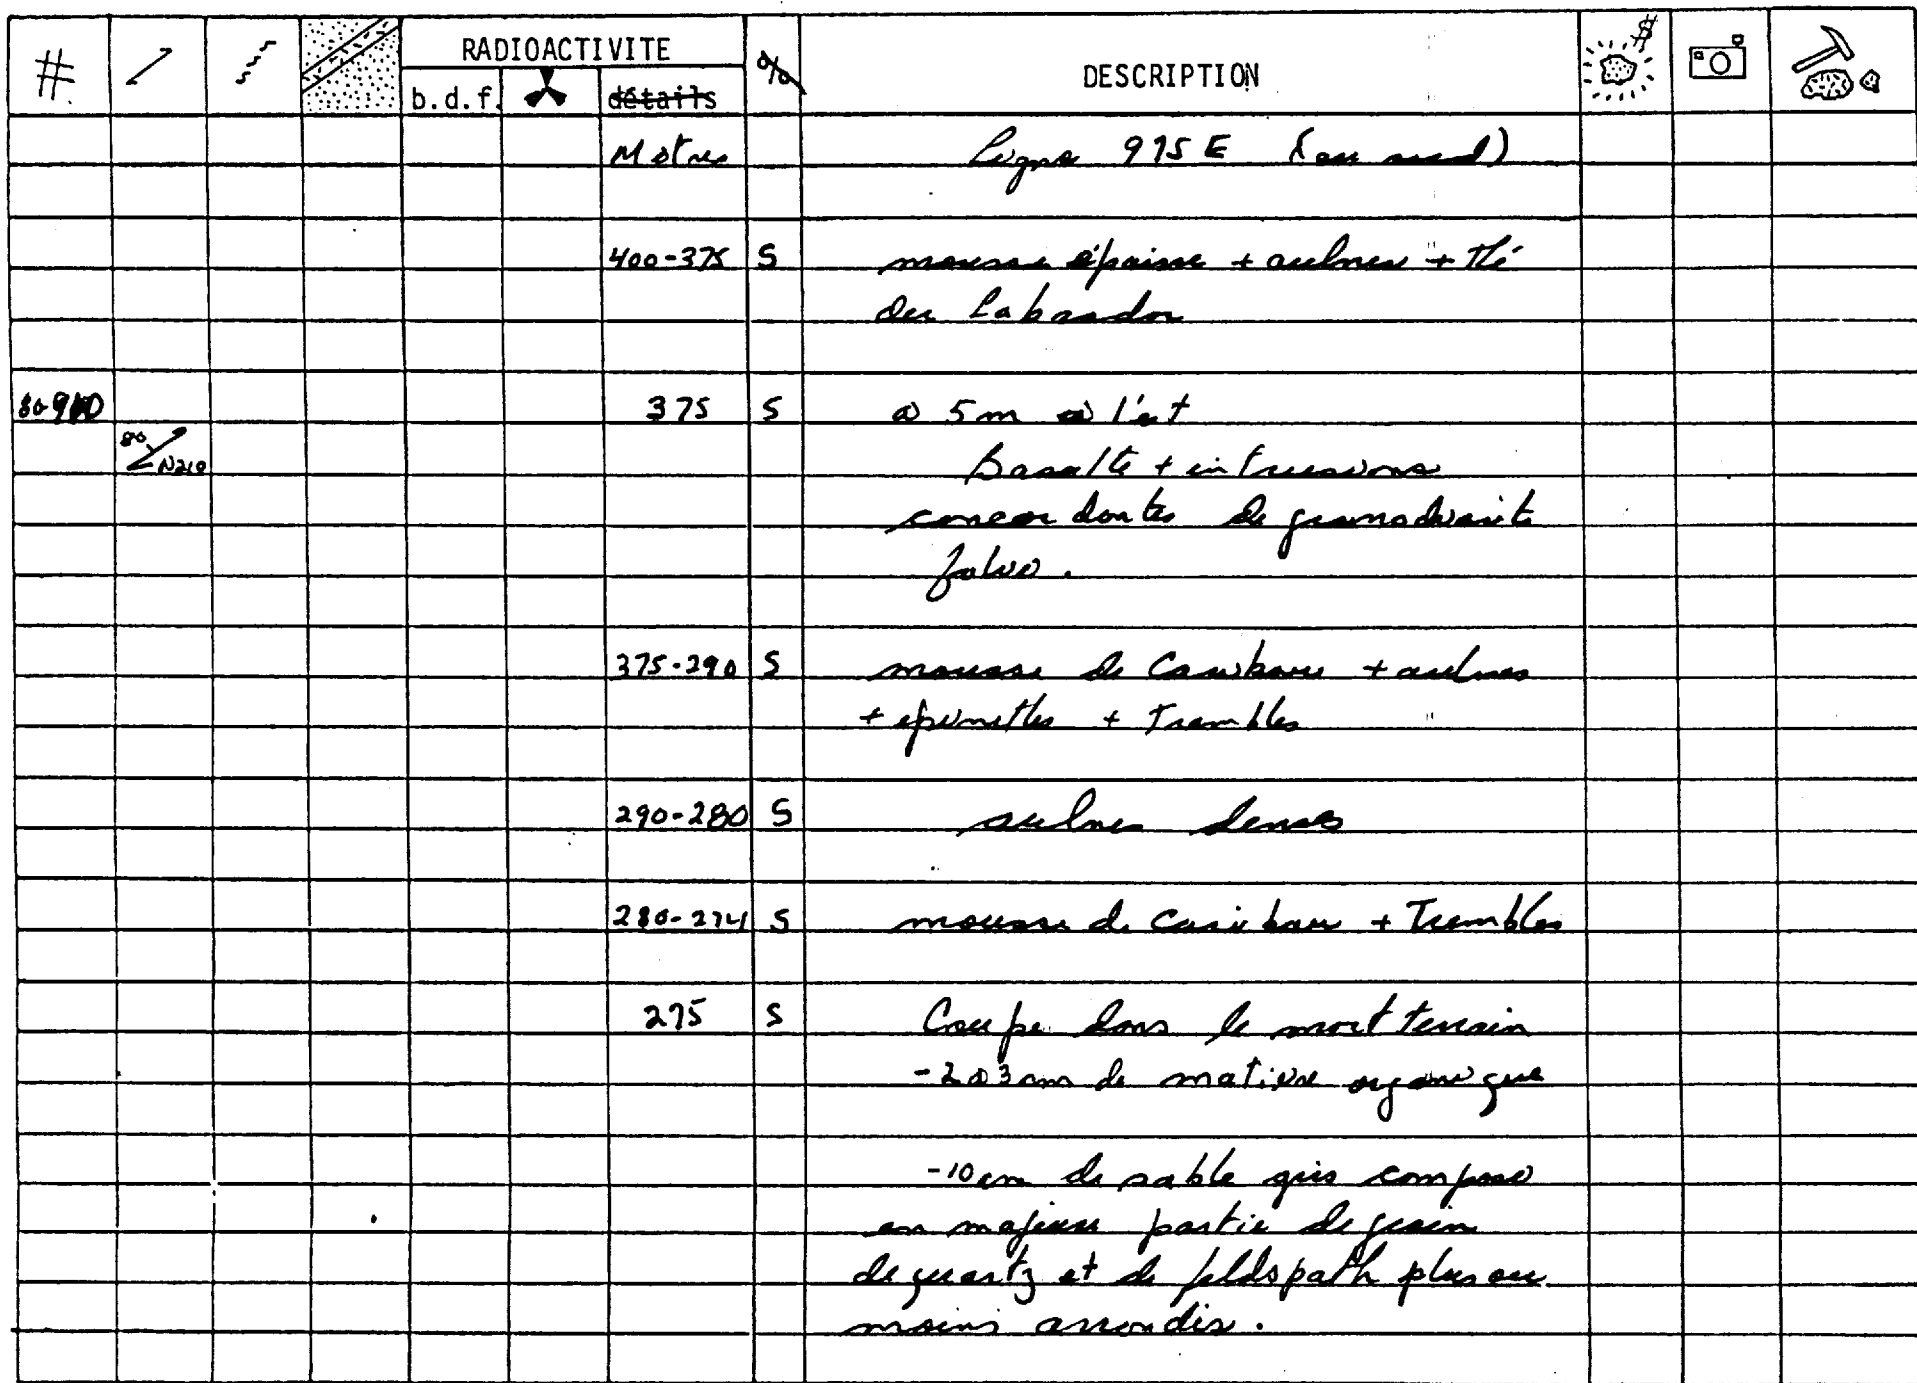 # RADIOACTIVITE % DESCRIPTION $
b.d.f. détails
Mètres Ligne 975 E (au sud)
400-375 S mousse épaisse + aulnes + thé
du Labrador
375 S à 5m à l'est
80 N210 Basalte + intrusions
concordantes de granodiorite
375-290 S mousse de Caribou + aulnes
+ épinettes + Trembles
290-280 S aulnes denses
280-274 S mousse de caribou + Trembles
275 S Coupe dans le mort terrain
-2 à 3 cm de matière organique
-10 cm de sable gris composé
en majeure partie de grain
de quartz et de feldspath plus ou
moins arrondis.